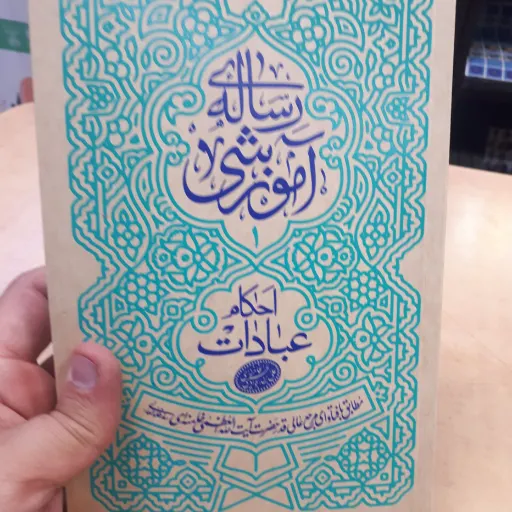 رساله‌ی
آموزشی
۱
احکام
عبادات
مطابق با فتاوای مرجع عالی‌قدر حضرت آیت الله العظمی خامنه‌ای